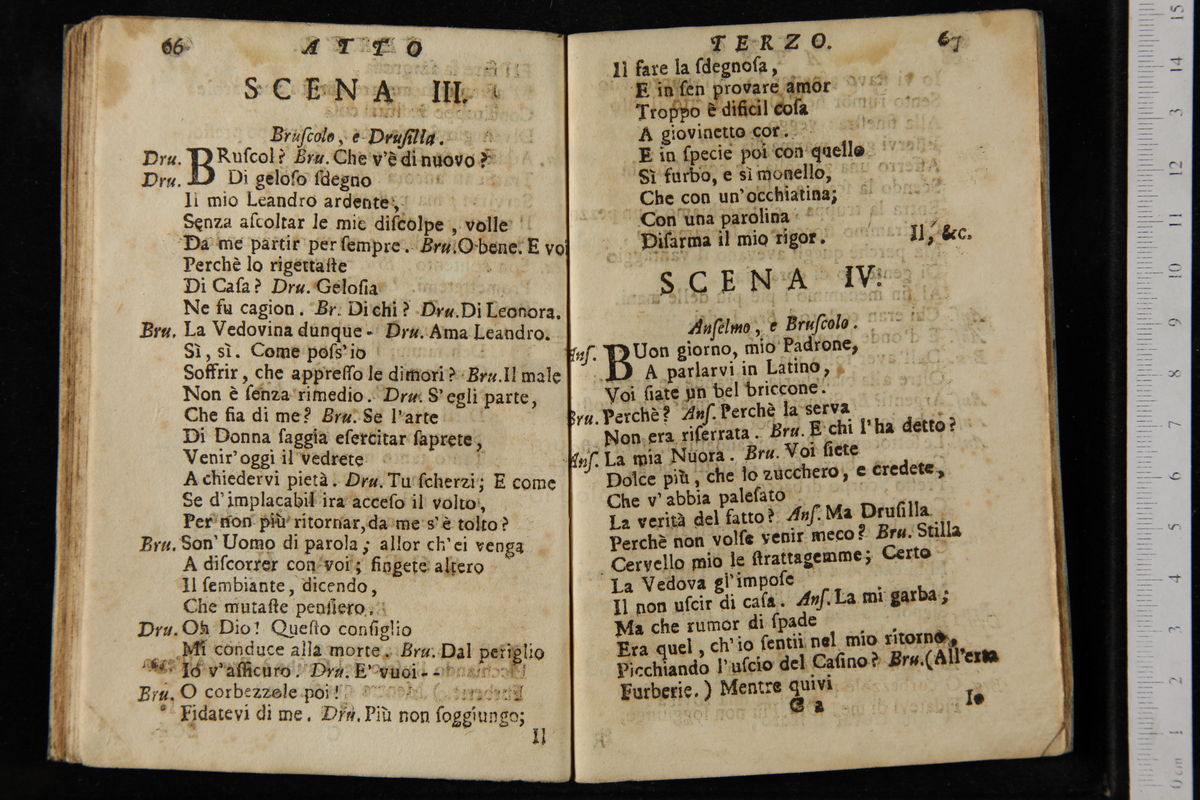 66 ATTO
SCENA III.
Bruſcolo, e Druſilla.
Dru. BRuſcol? Bru. Che v'è di nuovo?
Dru. Di geloſo ſdegno
Il mio Leandro ardente,
Senza aſcoltar le mie diſcolpe, volle
Da me partir per ſempre. Bru. O bene. E voi
Perchè lo rigettaſte
Di Caſa? Dru. Geloſia
Ne fu cagion. Br. Di chi? Dru. Di Leonora.
Bru. La Vedovina dunque- Dru. Ama Leandro.
Sì, sì. Come poſs'io
Soffrir, che appreſſo le dimori? Bru. Il male
Non è ſenza rimedio. Dru. S'egli parte,
Che fia di me? Bru. Se l'arte
Di Donna ſaggia eſercitar ſaprete,
Venir'oggi il vedrete
A chiedervi pietà. Dru. Tu ſcherzi; E come
Se d'implacabil ira acceſo il volto,
Per non più ritornar, da me s'è tolto?
Bru. Son'Uomo di parola; allor ch'ei venga
A diſcorrer con voi; fingete altero
Il ſembiante, dicendo,
Che mutaſte penſiero.
Dru. Oh Dio! Queſto conſiglio
Mi conduce alla morte. Bru. Dal periglio
Io v'aſſicuro. Dru. E' vuoi--
Bru. O corbezzole poi!
Fidatevi di me. Dru. Più non ſoggiungo;
Il
TERZO. 67
Il fare la ſdegnoſa,
E in ſen provare amor
Troppo è dificil coſa
A giovinetto cor.
E in ſpecie poi con quello
Sì furbo, e sì monello,
Che con un'occhiatina;
Con una parolina
Diſarma il mio rigor. Il, &c.
SCENA IV.
Anſelmo, e Bruſcolo.
Anſ. BUon giorno, mio Padrone,
A parlarvi in Latino,
Voi ſiate un bel briccone.
Bru. Perchè? Anſ. Perchè la serva
Non era riſerrata. Bru. E chi l'ha detto?
Anſ. La mia Nuora. Bru. Voi ſiete
Dolce più, che lo zucchero, e credete,
Che v'abbia paleſato
La verità del fatto? Anſ. Ma Druſilla
Perchè non volſe venir meco? Bru. Stilla
Cervello mio le ſtrattagemme; Certo
La Vedova gl'impoſe
Il non uſcir di caſa. Anſ. La mi garba;
Ma che rumor di ſpade
Era quel, ch'io ſentii nel mio ritorno,
Picchiando l'uſcio del Caſino? Bru. (All'erta
Furberie.) Mentre quivi
G 2 Io